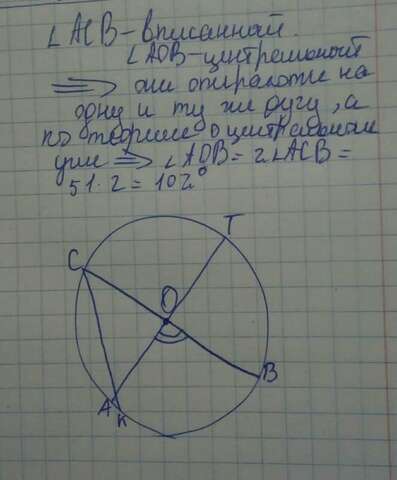 ∠ACB – вписанный.
∠AOB – центральный
⟹ они опираются на
одну и ту же дугу, а
по теореме о центральном
угле ⟹ ∠AOB = 2∠ACB =
51·2 = 102°
T
C
O
B
A
K